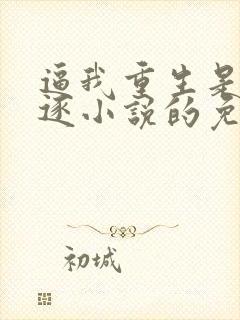 逼我重生是
逐小説的免
初城